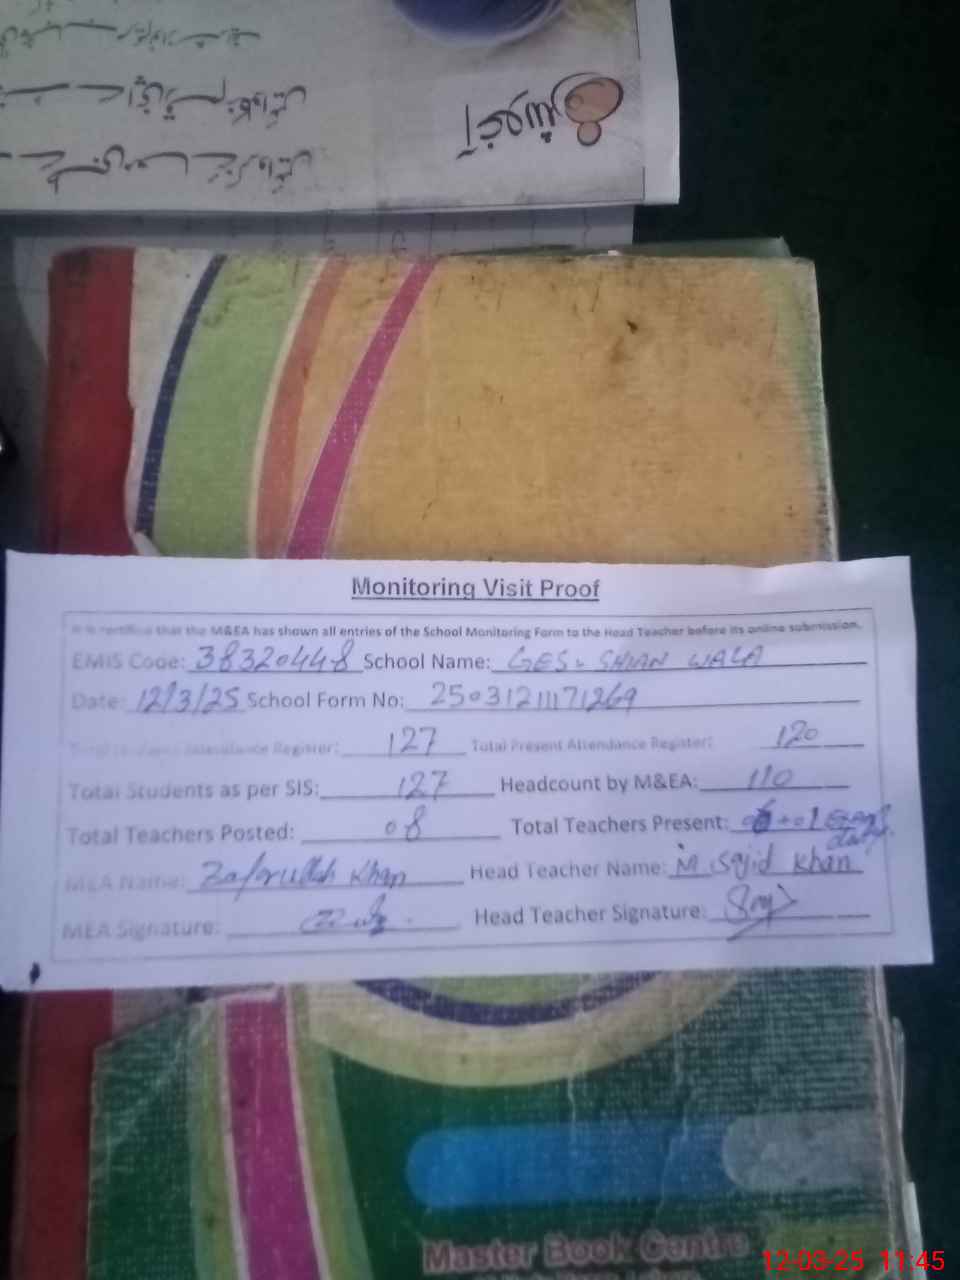 Monitoring Visit Proof
It is certified that the M&EA has shown all entries of the School Monitoring Form to the Head Teacher before its online submission.
EMIS Code: 38320448 School Name: GES. SHIAN WALA
Date: 12/3/25 School Form No: 25031211171269
Attendance Register: 127 Total Present Attendance Register: 120
Total Students as per SIS: 127 Headcount by M&EA: 110
Total Teachers Posted: 08 Total Teachers Present: 06+01 Exam duty
MEA Name: Zafarullah Khan Head Teacher Name: M. Sajid Khan
MEA Signature: Head Teacher Signature:
Master Book Centre
12-03-25 11:45